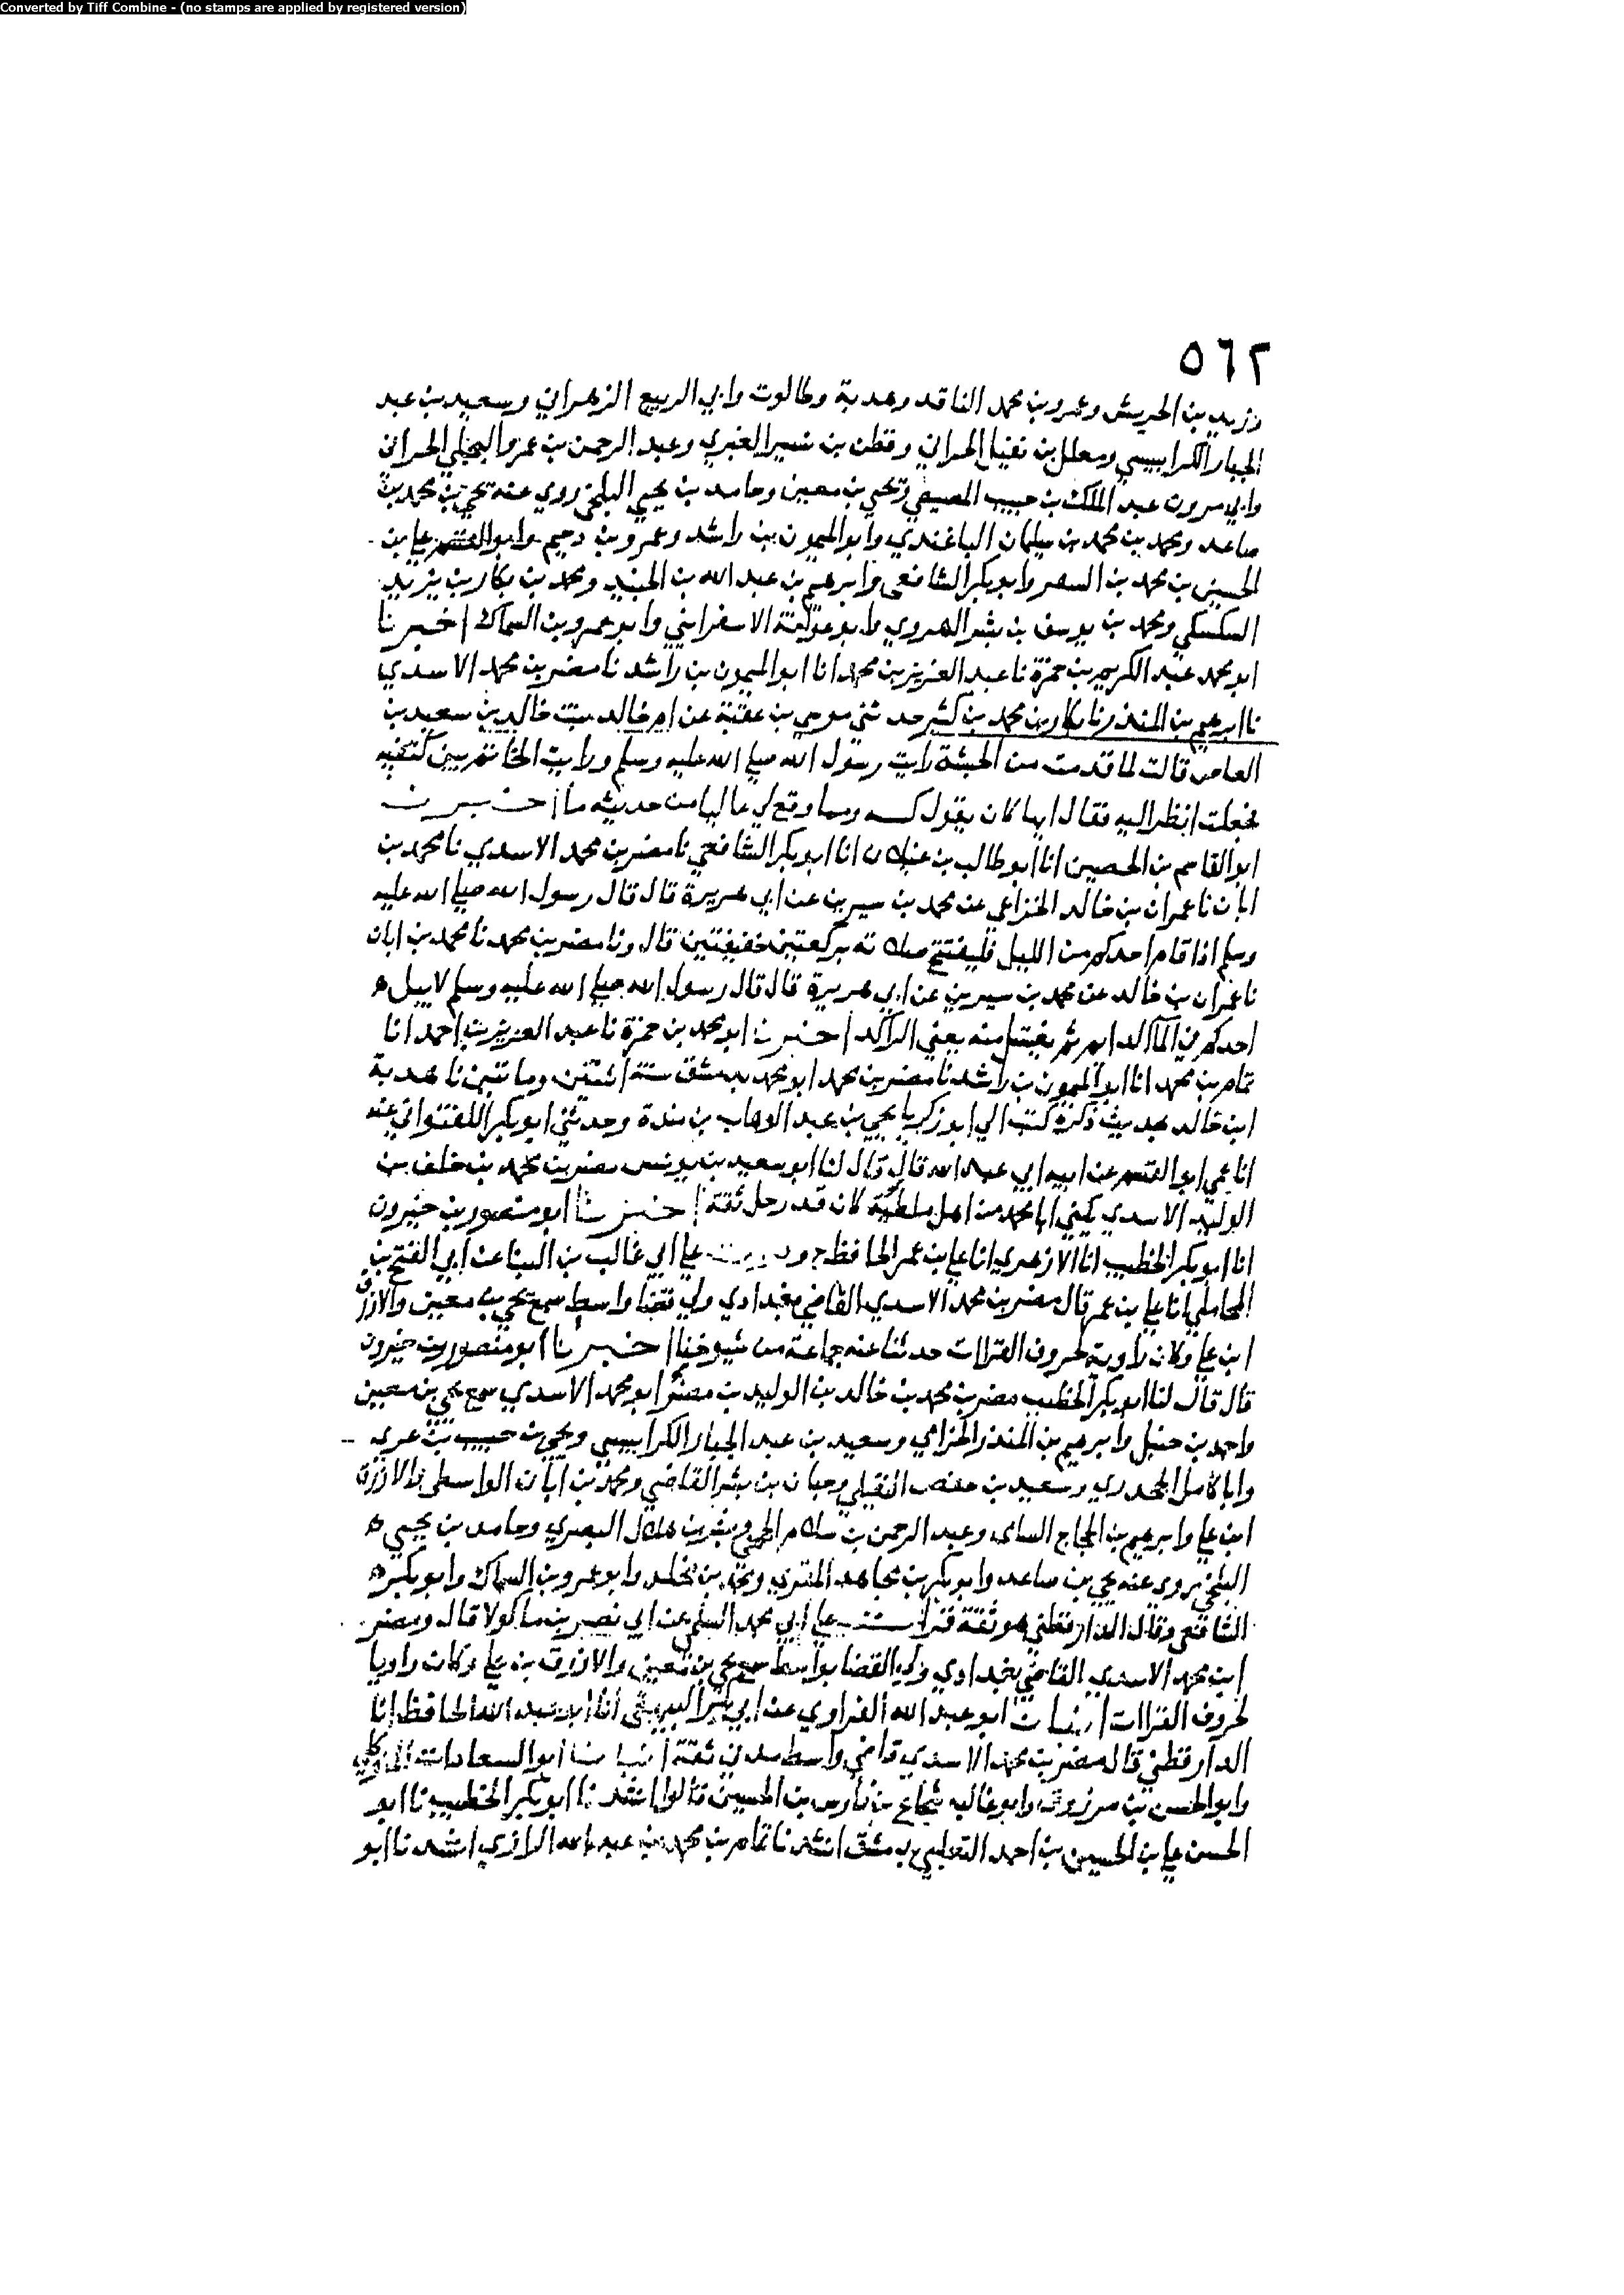 Converted by Tiff Combine - (no stamps are applied by registered version)
٥٦٢
وزيد بن الحريش وعمرو بن محمد الناقد وهدبة وطالوت وابي الربيع الزهراني وسعيد بن عبد
الجبار الكرابيسي ومعلل بن نفيل الحراني وقطن بن نسير الغبري وعبد الرحمن بن عمرو البجلي الحراني
وابي مرون عبد الملك بن حبيب المصيصي ويحيي بن معين وحامد بن يحيي البلخي روي عنه يحيي بن محمد بن
صاعد ومحمد بن محمد بن سليمان الباغندي وابو الميمون بن راشد وعمرو بن دحيم وابو القسم علي بن
الحسين بن محمد بن السفر وابو بكر الشافعي وابرهيم بن عبد الله بن الجنيد ومحمد بن بكار بن يزيد
السكسكي ومحمد بن يوسف بن بشر الهروي وابو عوانة الاسفرايني وابو عمرو بن السماك اخبرنا
ابو محمد عبد الكريم بن حمزة نا عبد العزيز بن محمد انا ابو الميمون بن راشد نا مضر بن محمد الاسدي
نا ابرهيم بن المنذر نا بكار بن محمد بن كثير حدثني موسي بن عقبة عن ام خالد بنت خالد بن سعيد بن
العاص قالت لما قدمت من الحبشة رايت رسول الله صلي الله عليه وسلم ورايت الخاتم بين كتفيه
فجعلت انظر اليه فقال ابها كان يقول كسه ومما وقع لي عاليا من حديثه ما اخبرنا
ابو القاسم بن الحصين انا ابو طالب بن غيلان انا ابو بكر الشافعي نا مضر بن محمد الاسدي نا محمد بن
ابان نا عمران بن خالد الخزاعي عن محمد بن سيرين عن ابي هريرة قال قال رسول الله صلي الله عليه
وسلم اذا قام احدكم من الليل فليفتتح صلاته بركعتين خفيفتين قال ونا مضر بن محمد نا محمد بن ابان
نا عمران بن خالد عن محمد بن سيرين عن ابي هريرة قال قال رسول الله صلي الله عليه وسلم لا يبل
احدكم في الما الدايم ثم يغتسل منه يعني الراكد اخبرنا ابو محمد بن حمزة نا عبد العزيز بن احمد انا
تمام بن محمد انا ابو الميمون بن راشد نا مضر بن محمد ابو محمد بدمشق سنة اثنتين ومائتين نا هدبة
ابن خالد بحديث ذكره كتب الي ابو زكريا يحيي بن عبد الوهاب بن مندة وحدثني ابو بكر اللفتواني عنه
انا عمي ابو القسم عن ابيه ابي عبد الله قال قال لنا ابو سعيد بن يونس مضر بن محمد بن خلف بن
الوليد الاسدي يكني ابا محمد من اهل ملطية كان قد رحل ثقة اخبرنا ابو منصور بن خيرون
انا ابو بكر الخطيب انا الازهري انا علي بن عمر الحافظ ح وقرات علي ابي غالب بن البنا عن ابي الفتح بن
المحاملي انا علي بن عمر قال مضر بن محمد الاسدي القاضي بغدادي ولي قضا واسط سمع يحيي بن معين والازرق
ابن علي وكان راوية لحروف القراات حدثنا عنه جماعة من شيوخنا اخبرنا ابو منصور بن خيرون
قال قال لنا ابو بكر الخطيب مضر بن محمد بن خالد بن الوليد بن مضر ابو محمد الاسدي سمع يحيي بن معين
واحمد بن حنبل وابرهيم بن المنذر الحزامي وسعيد بن عبد الجبار الكرابيسي ويحيي بن حبيب بن عربي
وابا كامل الجحدري وسعيد بن حفص النفيلي وحيان بن بشر القاضي ومحمد بن ابان الواسطي والازرق
ابن علي وابرهيم بن الحجاج السامي وعبد الرحمن بن سلام الجمحي وبشر بن هلال البصري وحامد بن يحيي
البلخي روي عنه يحيي بن صاعد وابو بكر بن مجاهد المقري ومحمد بن مخلد وابو عمرو بن السماك وابو بكر
الشافعي وقال الدارقطني هو ثقة قرات علي ابي محمد السلمي عن ابي نصر بن ماكولا قال ومضر
ابن محمد الاسدي القاضي بغدادي ولي القضا بواسط سمع يحيي بن معين والازرق بن علي وكان راويا
لحروف القراات انبانا ابو عبد الله الفراوي عن ابي بكر البيهقي انا ابو عبد الله الحافظ انا
الدارقطني قال مضر بن محمد الاسدي قاضي واسط ثقة انبانا ابو السعادات المتوكلي
وابو الحسن بن مرزوق وابو غالب شجاع بن فارس بن الحسين قالوا انشدنا ابو بكر الخطيب نا ابو
الحسن علي بن الحسين بن احمد التغلبي بدمشق انشدنا تمام بن محمد بن عبد الله الرازي انشدنا ابو